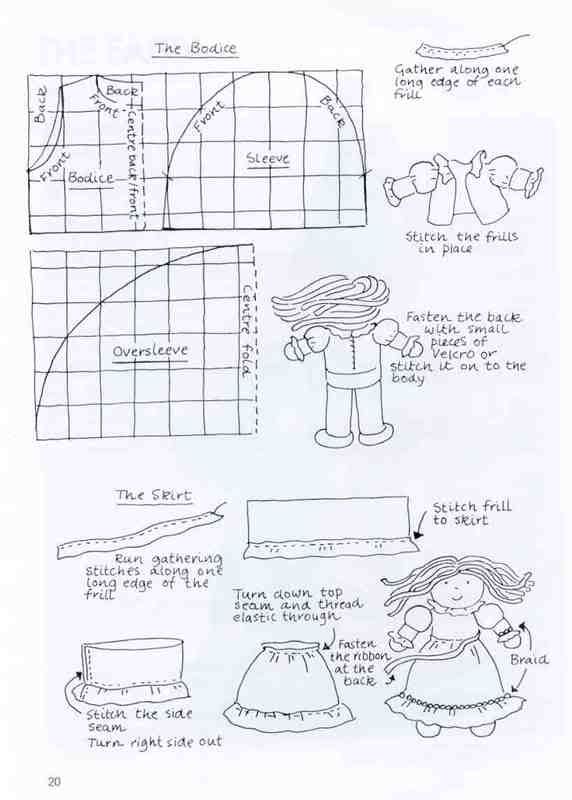 The Bodice
Back
Front
Back
Front
Bodice
Centre back/front
Front
Back
Sleeve
Gather along one
long edge of each
frill
Stitch the frills
in place
Oversleeve
Centre fold
Fasten the back
with small
pieces of
Velcro or
stitch it on to the
body
The Skirt
Run gathering
stitches along one
long edge of the
frill
Stitch frill
to skirt
Stitch the side
seam
Turn right side out
Turn down top
seam and thread
elastic through
Fasten
the ribbon
at the
back
Braid
20